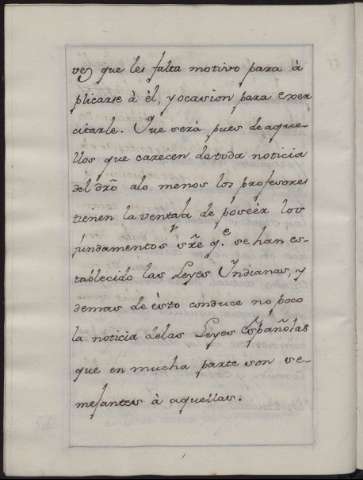 vez que les falta motivo para à
plicarse à èl, y ocasion para exer
citarle. Que será pues de aque-
llos que carecen de toda noticia
del dr̃o alo menos los profesores
tienen la ventaja de poseèr los
fundamentos sr̃e q.e se han es-
tablecido las Leyes Yndianas, y
demas de ésto conduce no poco
la noticia delas Leyes Españolas
que en mucha parte son se-
mejantes à aquellas.